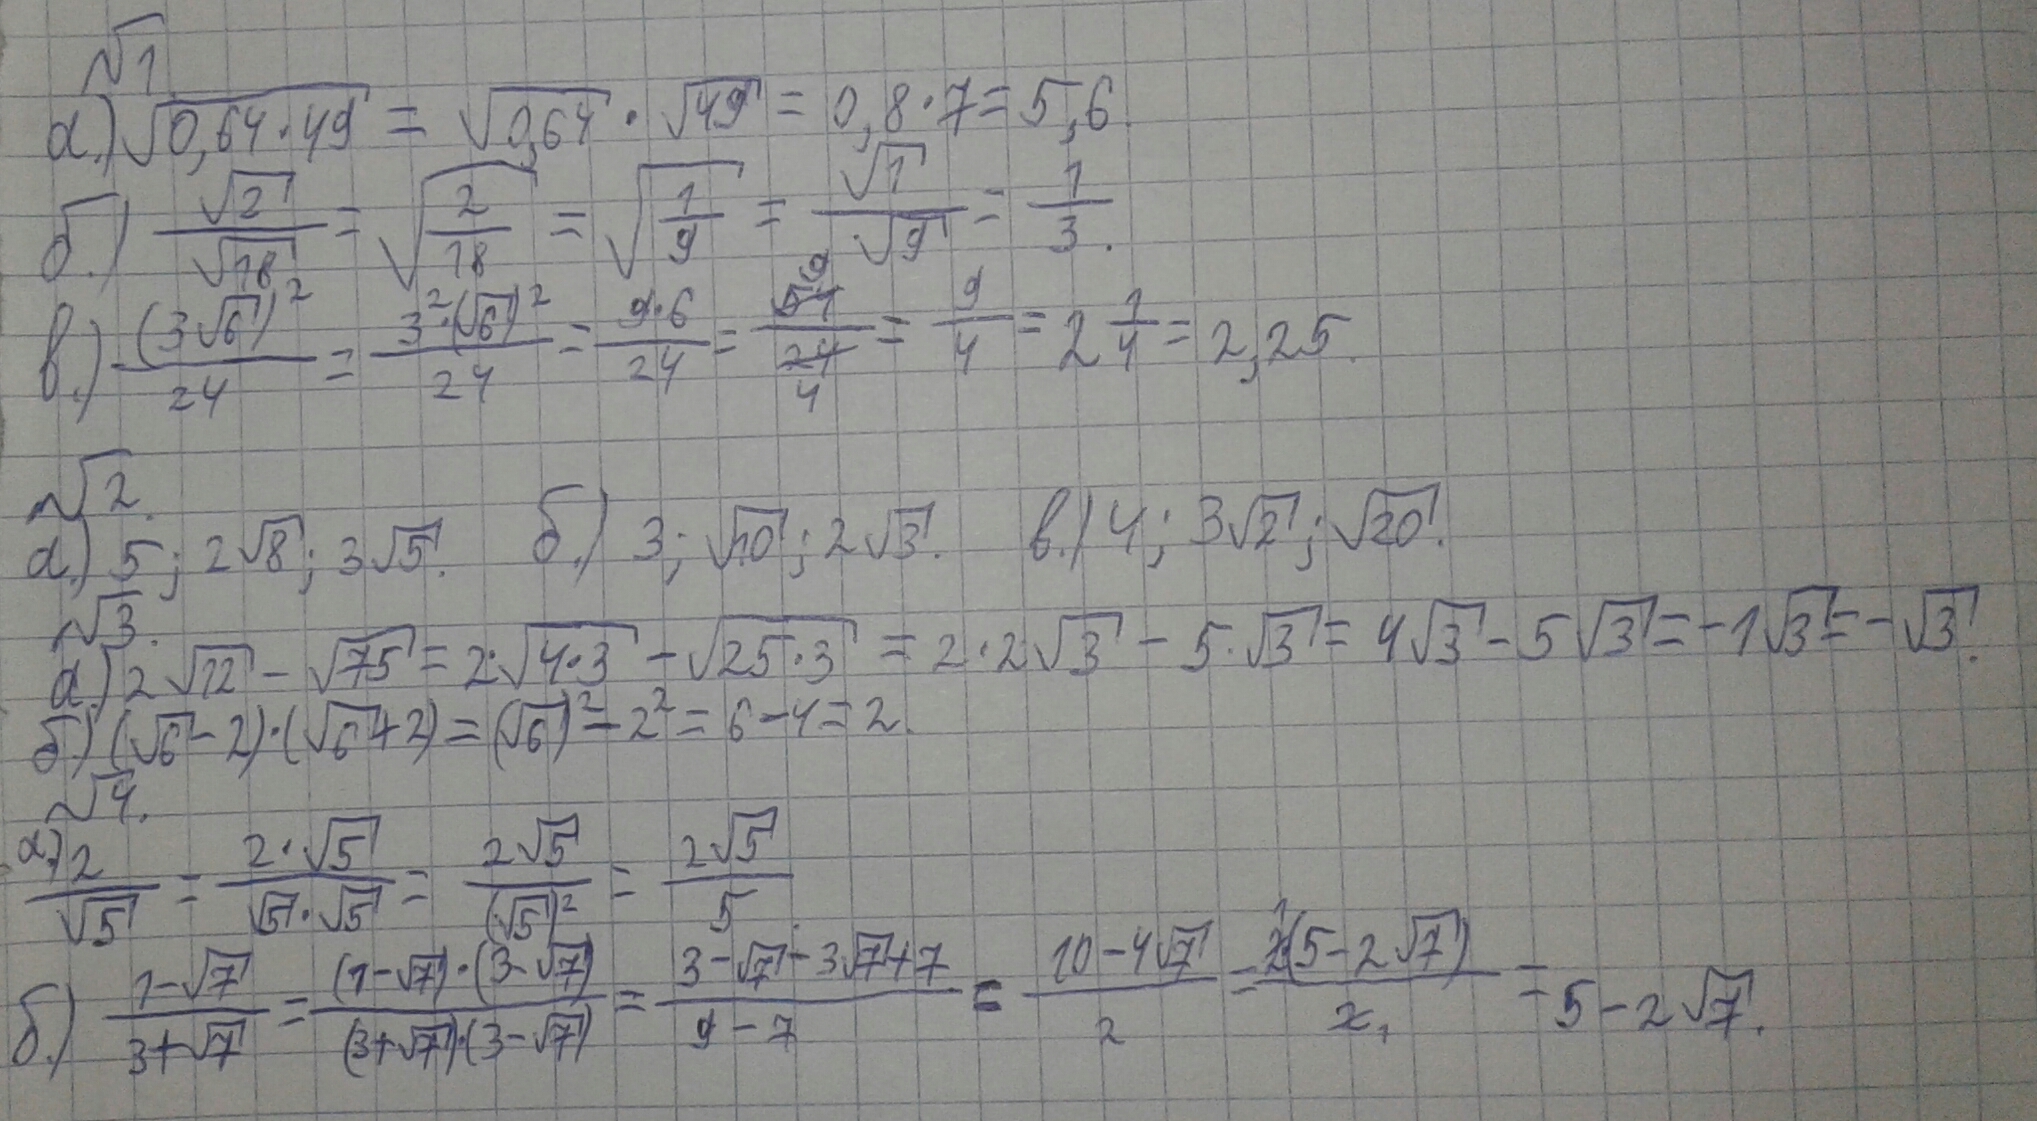 √1.
а.) √(0,64·49) = √0,64 · √49 = 0,8·7 = 5,6.
б.) √2/√18 = √(2/18) = √(1/9) = √1/√9 = 1/3.
в.) (3√6)²/24 = 3²·(√6)²/24 = 9·6/24 = 54/24 = 9/4 = 2 1/4 = 2,25.
√2.
а.) 5; 2√8; 3√5. б.) 3; √10; 2√3. в.) 4; 3√2; √20.
√3.
а.) 2√12 - √75 = 2·√(4·3) - √(25·3) = 2·2√3 - 5·√3 = 4√3 - 5√3 = -1√3 = -√3.
б.) (√6-2)·(√6+2) = (√6)² - 2² = 6-4 = 2.
√4.
а.) 2/√5 = 2·√5/(√5·√5) = 2√5/(√5)² = 2√5/5.
б.) (1-√7)/(3+√7) = (1-√7)·(3-√7)/((3+√7)·(3-√7)) = (3-√7-3√7+7)/(9-7) = (10-4√7)/2 = 2(5-2√7)/2 = 5-2√7.